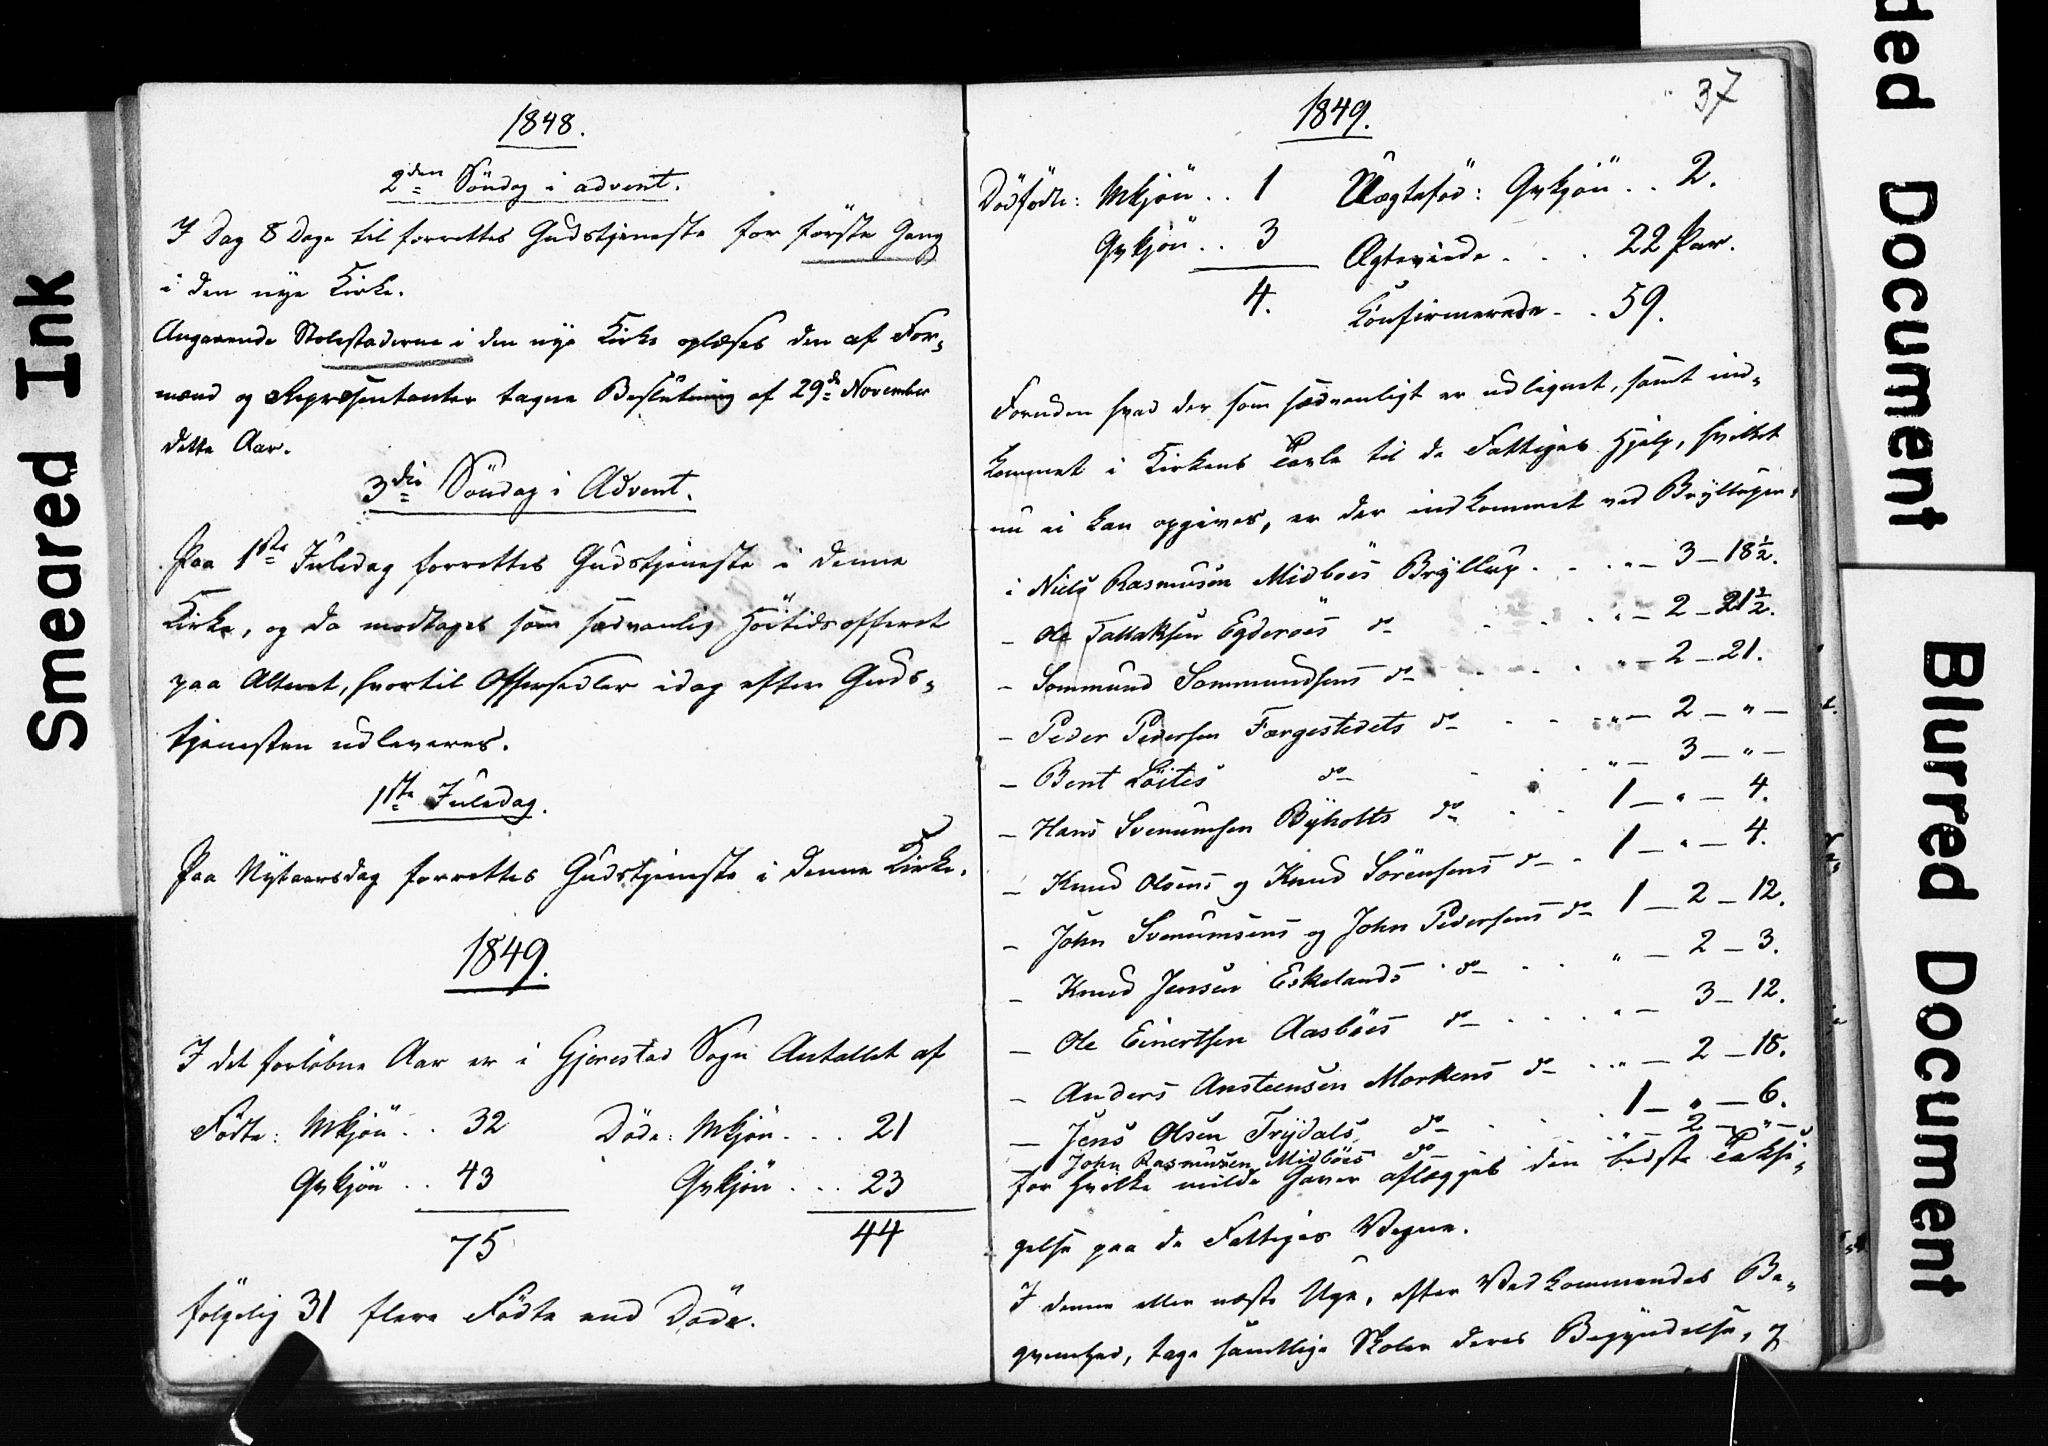 1848.
2den Söndag i advent.
I Dag 8 Dage til forrettes Gudstjeneste for förste Gang
i den nye Kirke.
Angaaende Stolestaderne i den nye Kirke oplæses den af For-
mænd og Repræsentanter tagne Beslutning af 29de November
dette Aar.
3die Söndag i Advent.
Paa 1ste Juledag forrettes Gudstjeneste i denne
Kirke, og da modtages som sædvanlig Höitidsofferet
paa Alteret, hvortil Offersedler idag efter Guds-
tjenesten udleveres.
1ste Juledag.
Paa Nytaarsdag forrettes Gudstjeneste i denne Kirke.
1849.
I det forløbne Aar er i Gjerestad Sogn Antallet af
Födte: Mkjön .. 32 Döde: Mkjön ... 21
Qvkjön .. 43 Qvkjön ... 23
75 44
fölgelig 31 flere Födte end Döde.
37
1849.
Dödfödte: Mkjön .. 1 Uægtefød: Qvkjön .. 2.
Qvkjön .. 3 Ægteviede ... 22 Par.
4. Konfirmerede .. 59.
Foruden hvad der som sædvanligt er udlignet, samt ind-
kommet i Kirkens Tavle til de Fattiges Hjelp, hvilket
nu ei kan opgives, er der indkommet ved Bryllupper:
i Niels Rasmusen Midböes Bryllup . . . „ — 3 — 18½.
— Ole Tallaksen Egderöes do . . . „ — 2 — 21½.
— Sommund Sommundsens do . . . „ — 2 — 21.
— Peder Pedersen Færgestedets do . . „ — 2 — „ —
— Bent Löites do . . . „ — 3 — „ —
— Hans Svenumsen Byholts do . . 1 — „ — 4.
— Knud Olsens og Knud Sörensens do . 1 — „ — 4.
— John Svenumsens og John Pedersens do 1 — 2 — 12.
— Knud Jensen Eskelands do . . „ — 2 — 3.
— Ole Einertsen Aasböes do . . . „ — 3 — 12.
— Anders Ansteensen Morkens do . . „ — 2 — 18.
— Jens Olsen Trydals do . . . 1 — „ — 6.
John Rasmusen Midböes do . . . „ — 2 — „ —
for hvilke milde Gaver aflægges den bedste Taksi-
gelse paa de Fattiges Vegne.
I denne eller næste Uge, efter Vedkommendes Be-
qvemhed, tage samtlige Skoler deres Begyndelse, og
Smeared Ink
ded Document
Blurred Document